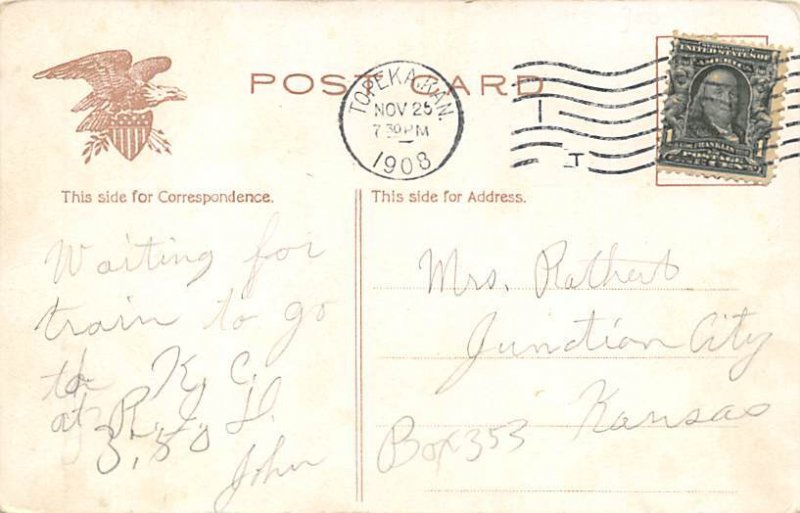 POST CARD
TOPEKA, KAN.
NOV 25
7 30 PM
1908
UNITED STATES OF
AMERICA
1 FRANKLIN 1
This side for Correspondence.
This side for Address.
Waiting for
train to go
to K. C.
at R. I. D.
3,50
John
Mrs. Rathert
Junction City
Kansas
Box 353